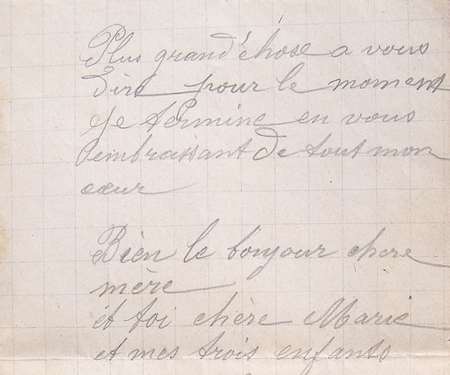 Plus grand'chose a vous
dire pour le moment
Je termine en vous
embrassant de tout mon
cœur
Bien le bonjour chere
mère
et toi chère Marie
et mes trois enfants